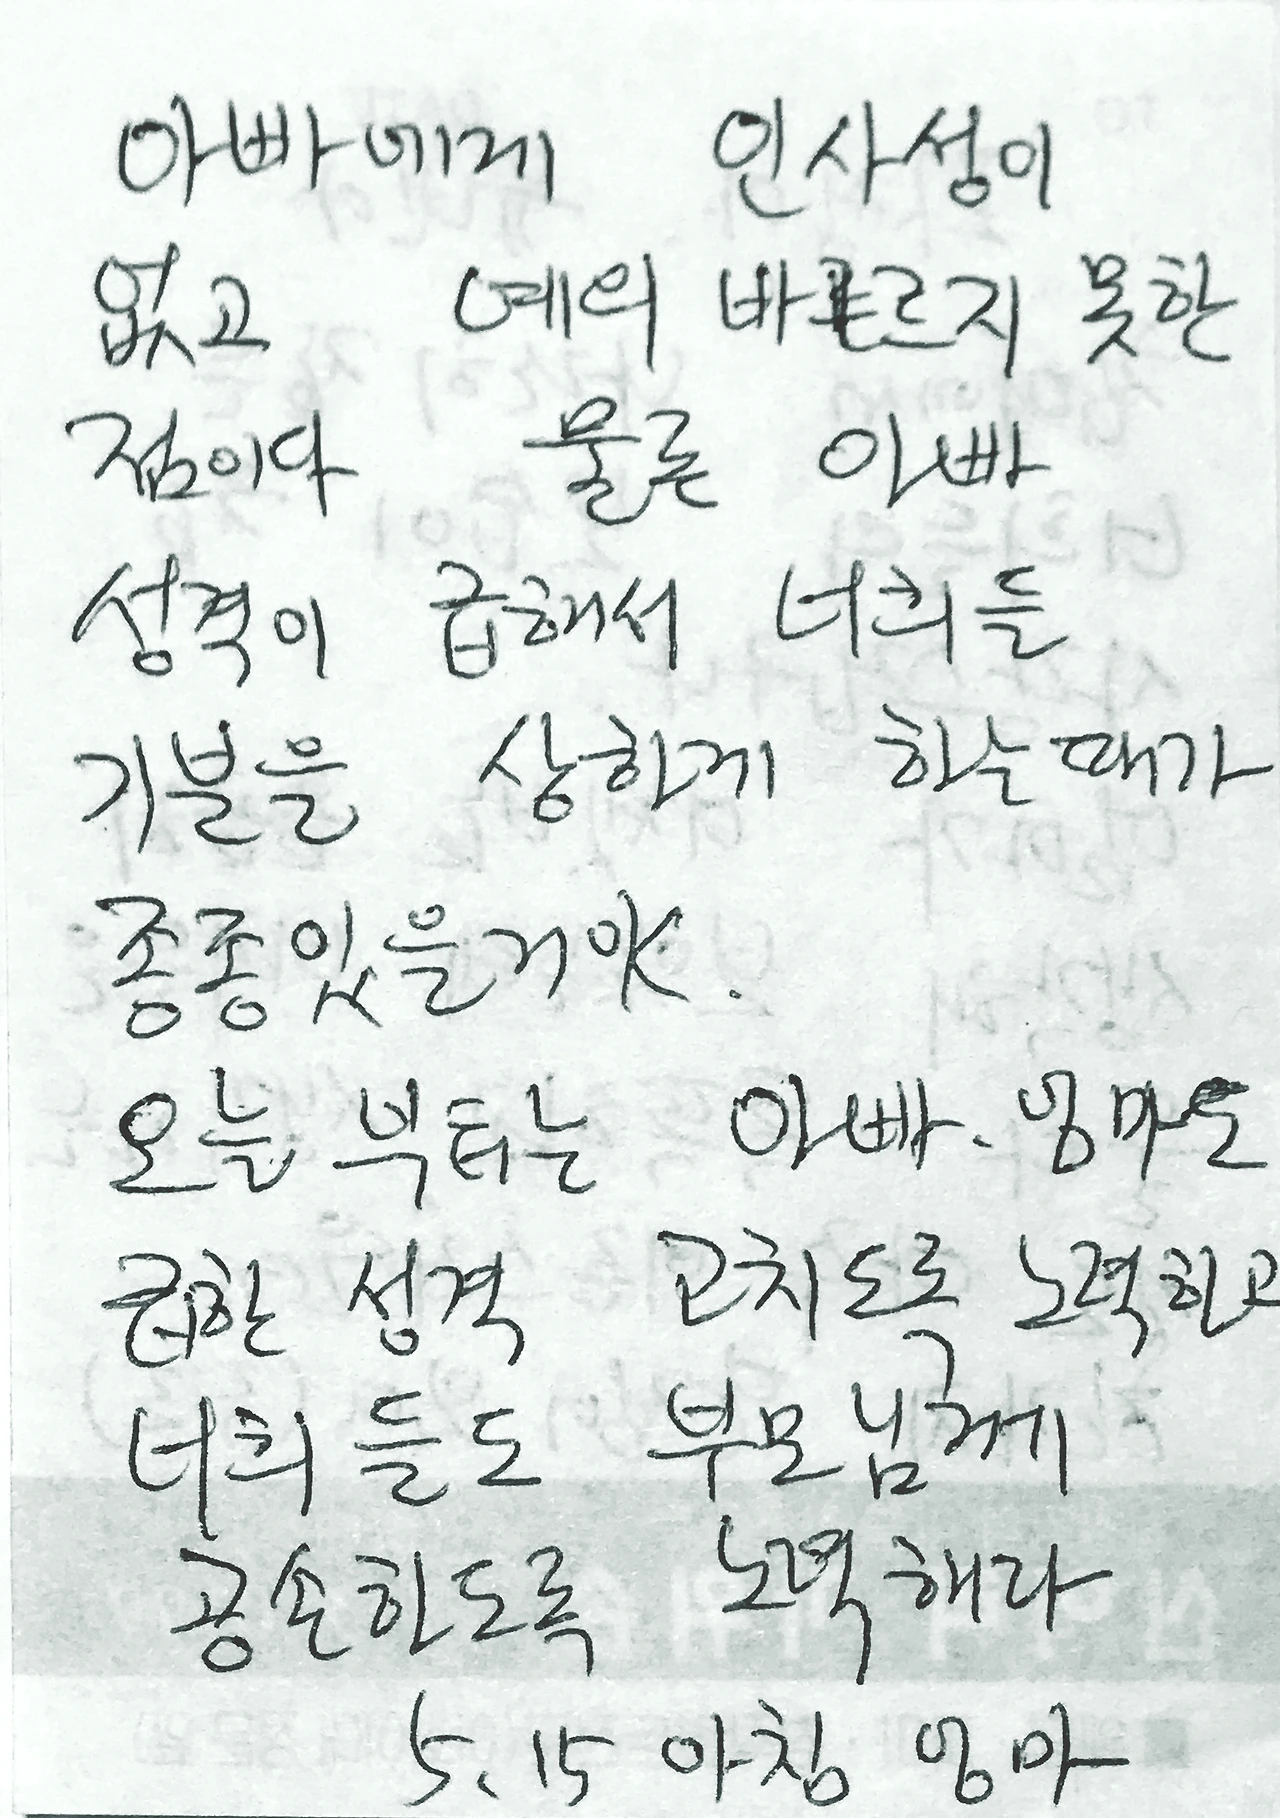 아빠에게 인사성이
없고 예의 바르지 못한
점이다 물론 아빠
성격이 급해서 너희들
기분을 상하게 하는때가
종종있을거야.
오늘부터는 아빠. 엄마도
급한 성격 고치도록 노력하고
너희들도 부모님께
공손하도록 노력해라
5.15 아침 엄마